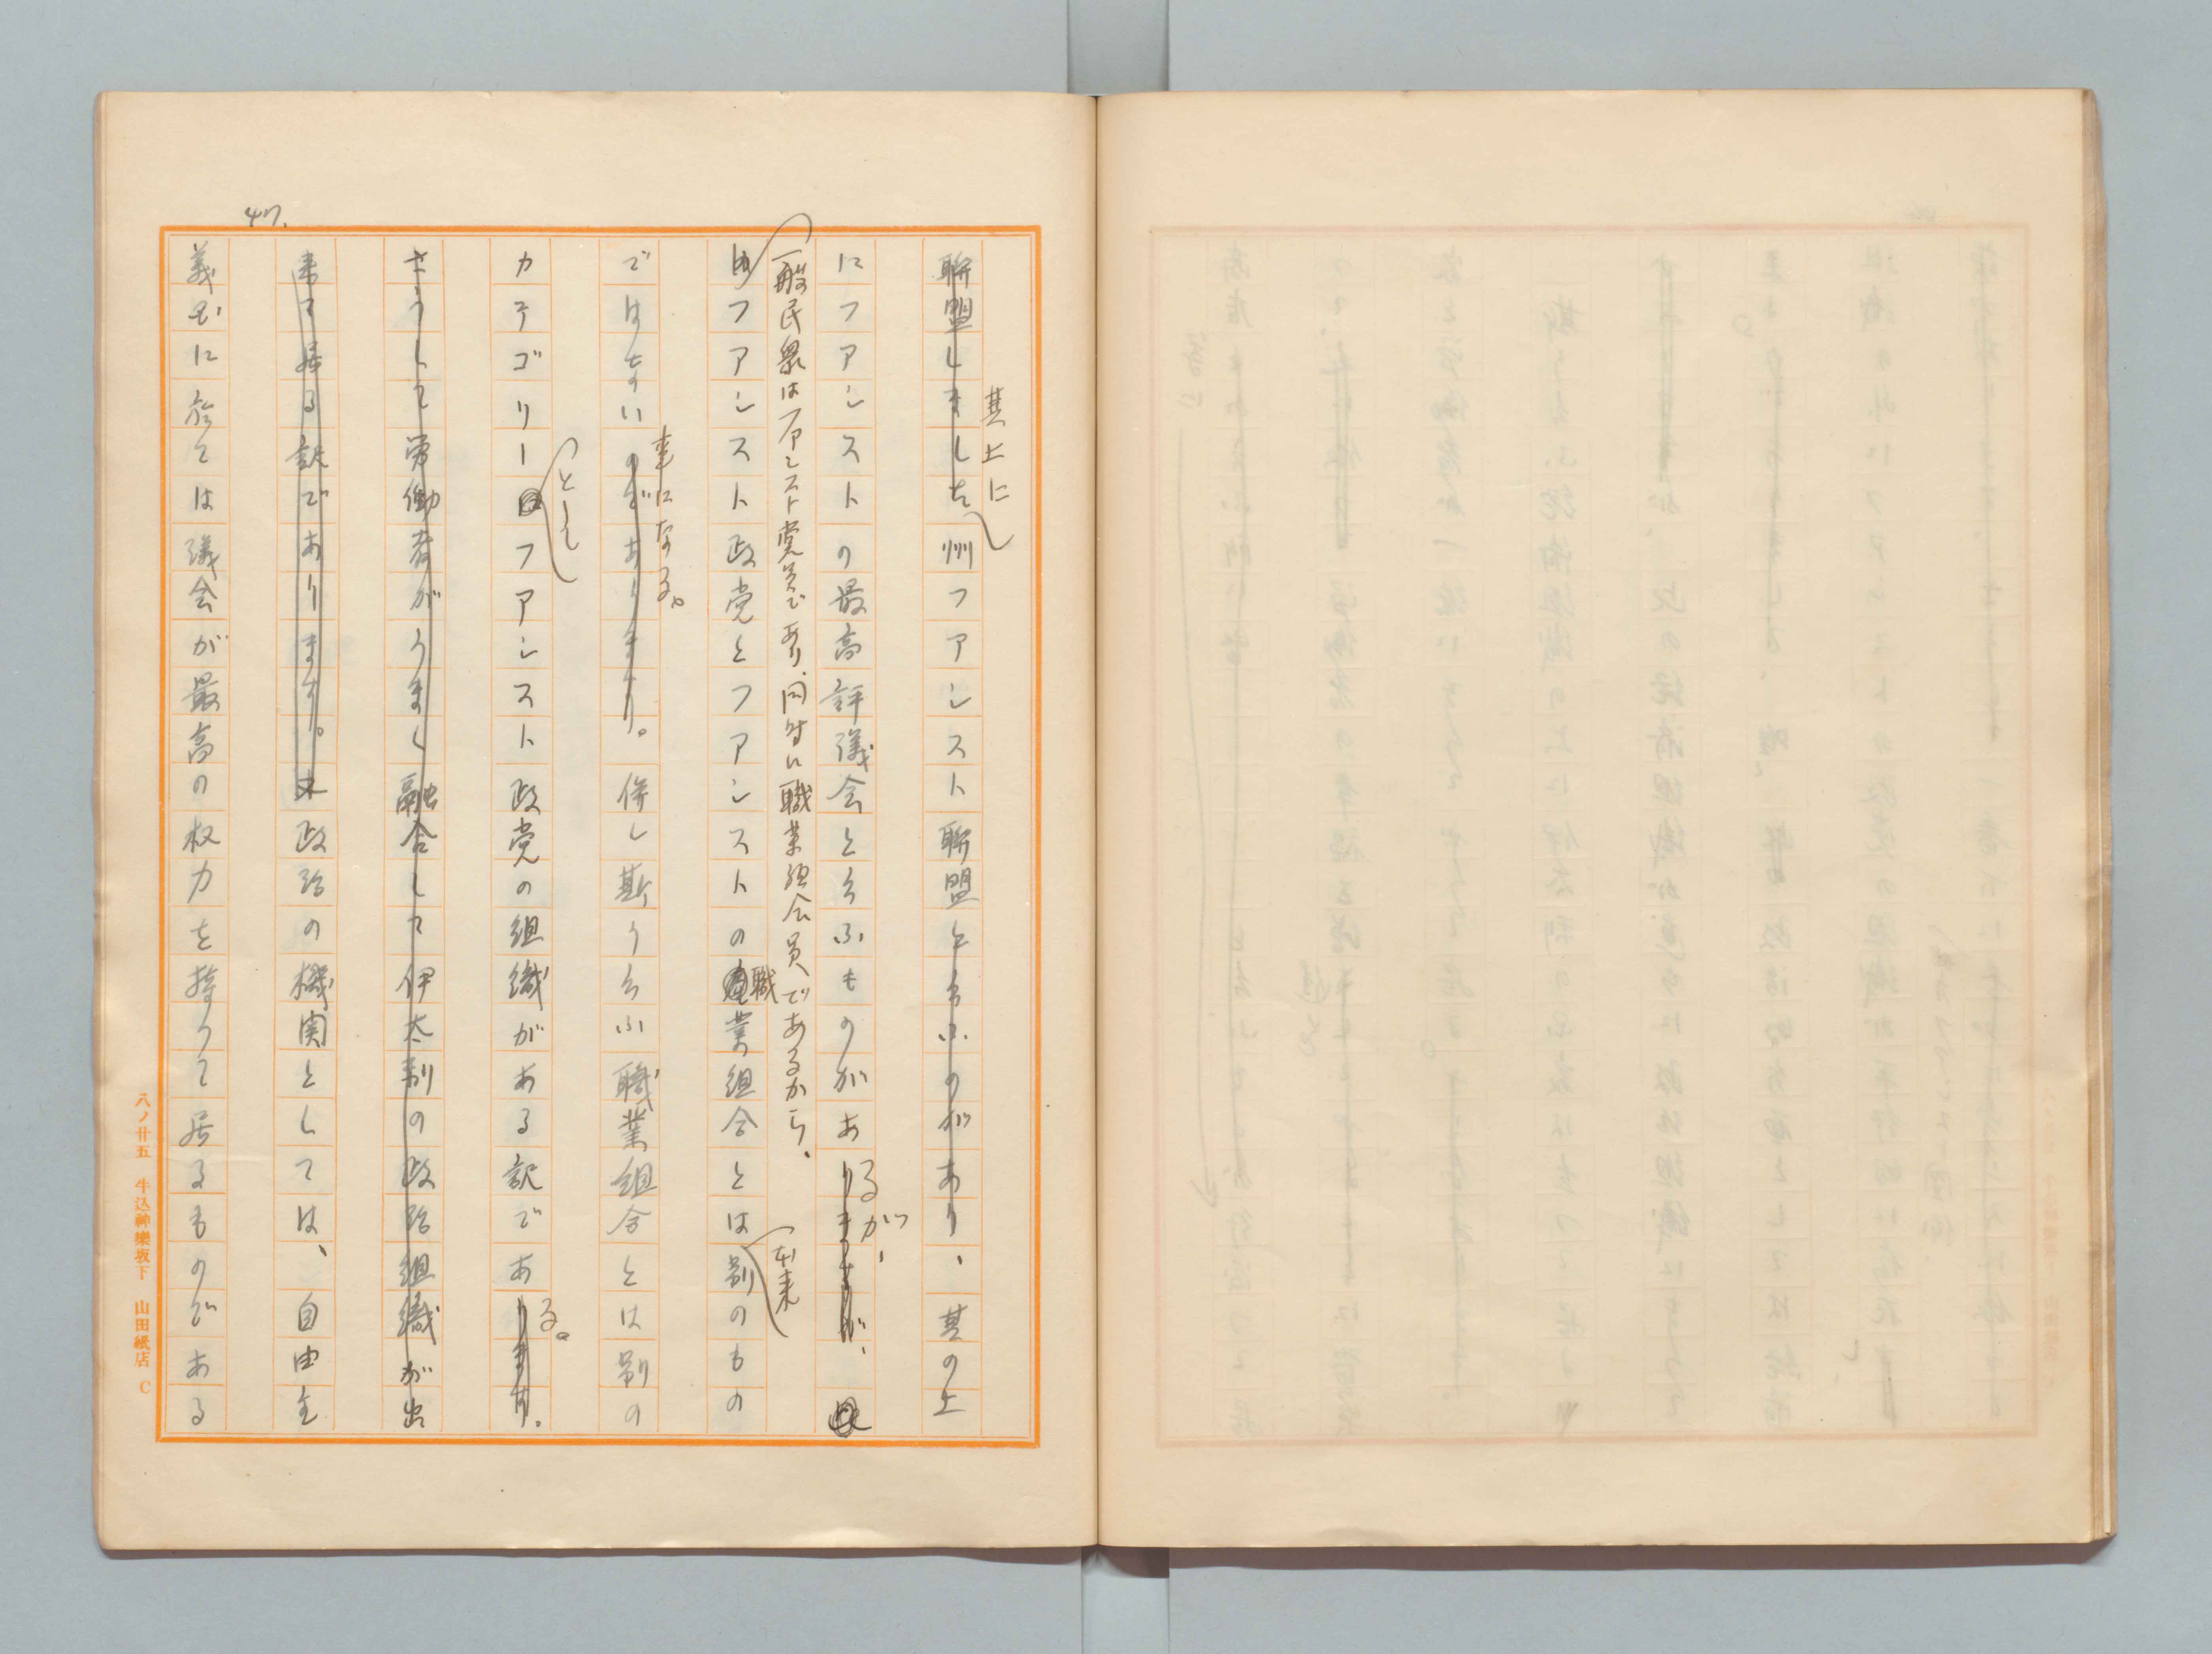 47.
其上に
聯盟しました州フアシスト聯盟と云ふのがあり、其の上
にフアシストの最高評議会と云ふものがありますが、
るが、
一般民衆はファシスト党員であり、同時に職業組合員であるから、
フアンスト政党とフアンストの職業組合とは別のもの
本来
ではないのであります。併し斯う云ふ職業組合とは別の
事になる。
カテゴリーフアンスト政党の組織がある訳であります。
として
る。
さうして労働者がうまく融合して伊太利の政治組織が出
来て居る訳であります。政治の機関としては、自由主
義国に於ては議会が最高の权力を持つて居るものである
八ノ廿五 牛込神樂坂下 山田紙店 C